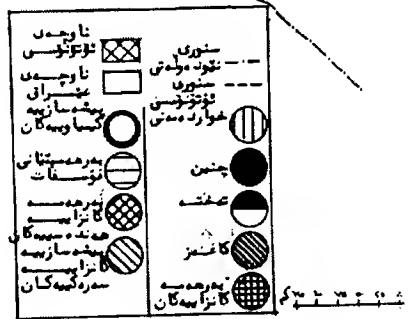 ناوچەی
ئۆتۆنۆمی
ناوچەی
عێراقی
پیشەسازییە
کیمیاوییەکان
بەرهەمهێنانی
فۆسفات
بەرهەمە
کانزاییە
هەندەسییەکان
پیشەسازییە
کانزاییە
سەرەکییەکان
سنوری
نێودەوڵەتی
سنوری
ئۆتۆنۆمی
خواردەمەنی
چنین
تەختە
کاغەز
بەرهەمە
کانزاییەکان
کم